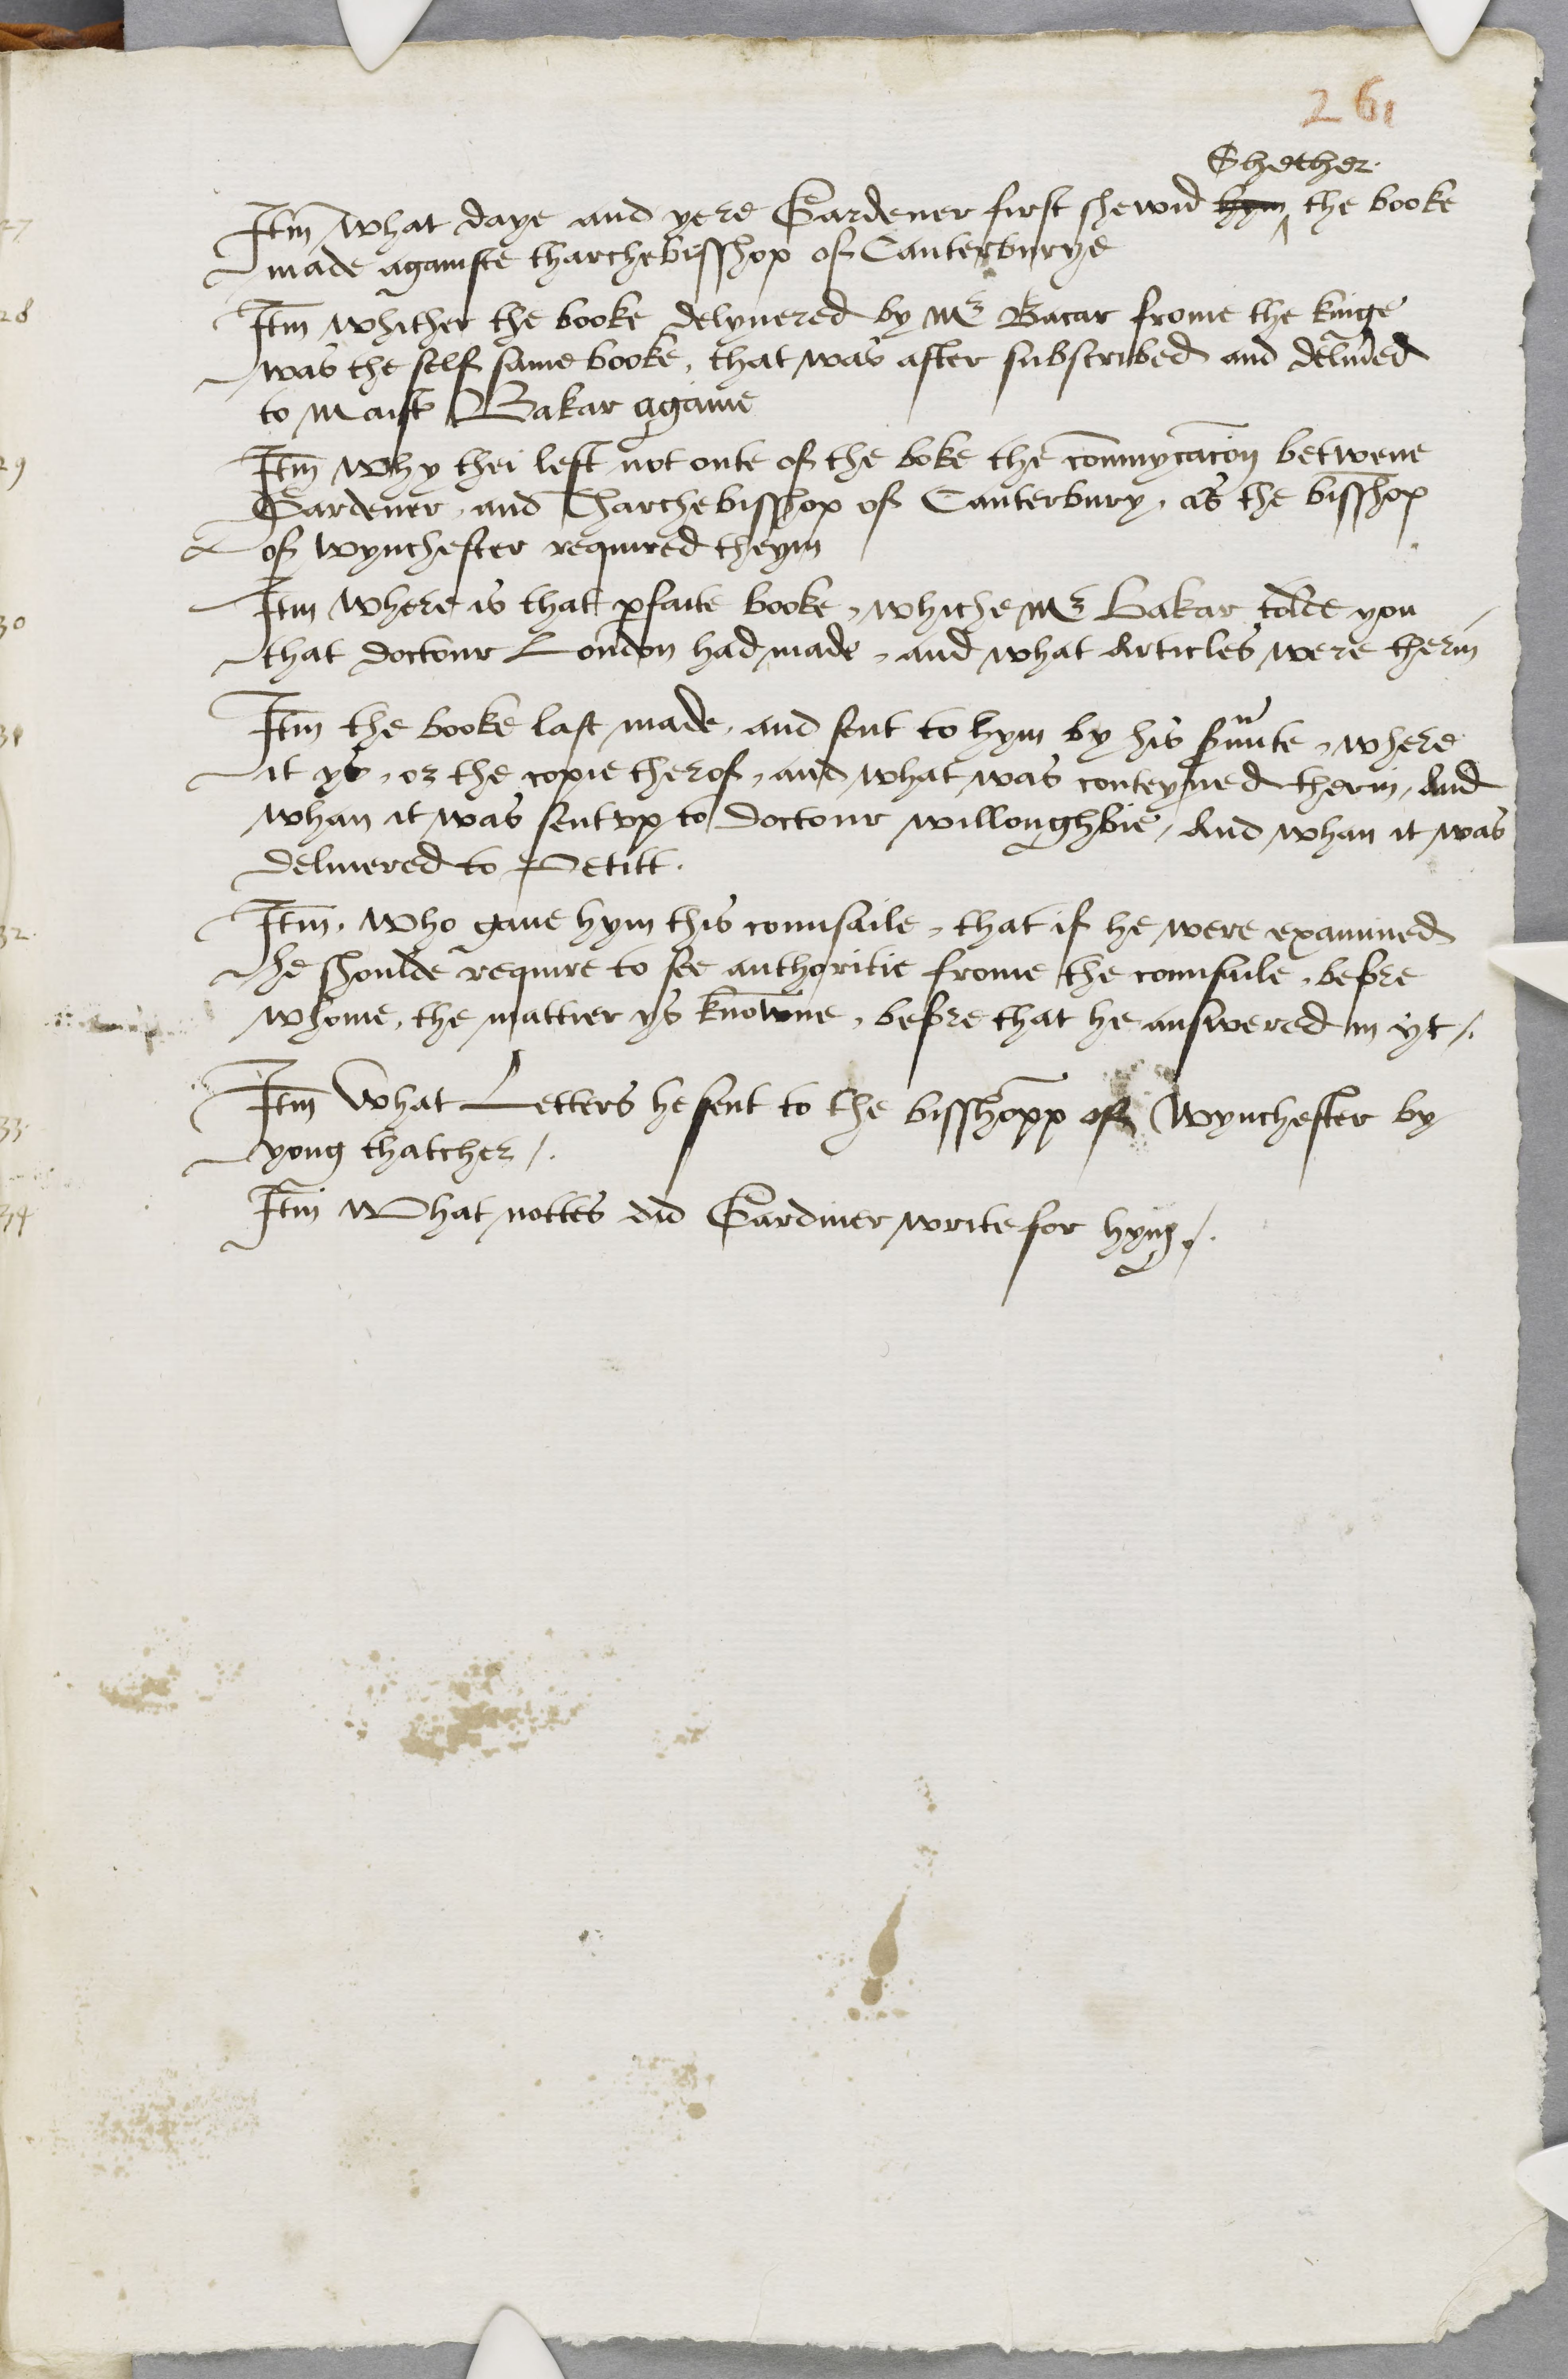 261
Shether
27 Itm what daye and yere Gardener first shewid hym the booke
made againste tharchebisshop of Canterburye
28 Itm whither the booke delyuered by Mr Bacar frome the kinge
was the self same booke, that was after subscribed and deliu͞ed
to Maist Bakar againe
29 Itm why thei left not oute of the boke the com͞mycac͞on betwene
Gardener, and Tharchebisshop of Canterbury, as the bisshop
of wynchester required theym
30 Itm where is that pfaite booke, whiche Mr Bakar tolde you
that doctour London had made, and what Articles were therin
31 Itm the booke last made, and sent to hym by his s͞uunte, where
it ys, or the copie therof, and what was conteyned therin, And
whan it was sent vp to doctour willoughbie, And whan it was
deliuered to Petitt.
32 Itm, who gaue hym this counsaile, that if he were examined
he shoulde require to see authoritie frome the counsaile, before
whome, the mattier ys knowne, before that he answered in yt /.
33 Itm what Letters he sent to the bisshopp of wynchester by
yong thatcher /.
34 Itm what nottes did Gardiner write for hym /.